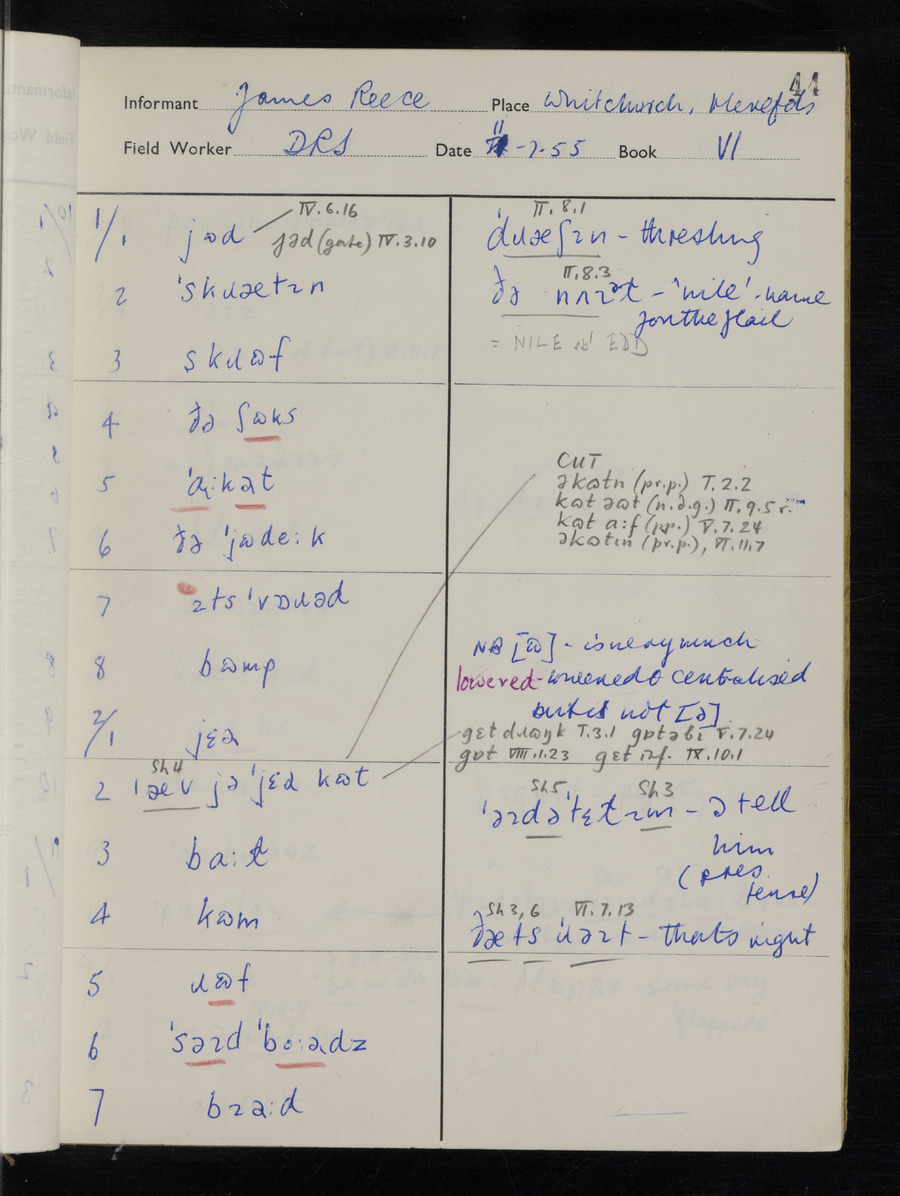 44
Informant James Reece Place Whitchurch, Herefds
Field Worker DRS Date 11-7-55 Book VI
1/1 jɷd IV.6.16
jəd (gate) IV.3.10
2 ˈskɹætɪn
3 skɹɷf
4 ðə ʃɷks
5 ˈaːkət
6 ðə ˈjɷdeːk
7 ɪts ˈvɒɹəd
8 bɷmp
2/1 jɛə
2 ˈæv jə ˈjɛə kɷt
Sh4
3 baːɫ
4 kɷm
5 ɹɷf
6 ˈsəɪd ˈboːədz
7 bɪəːd
II.8.1
ˈdɹæʃɪn - threshing
II.8.3
ðə nʌɪəɫ - 'nile' - name
for the flail
= NILE sb¹ EDD
CUT
əkɷtn (pr.p.) I.2.2
kɷt əɷt (n.d.g.) II.9.5 r.
kɷt aːf (pp.) V.7.24
əkɷtin (pr.p.), VI.11.7
NB [ɷ] - is very much
lowered - & centralised
but is not [ə]
gɛt dɹɷŋk I.3.1 gɒtəbɪ V.7.24
gɒt VIII.1.23 gɛt inf. IX.10.1
Sh5 Sh3
ˈəɪdəˈtɛɫɪm - I tell
him
(pres.
tense)
Sh3,6 VI.7.13
ðæts ˈɹəɪt - that's right